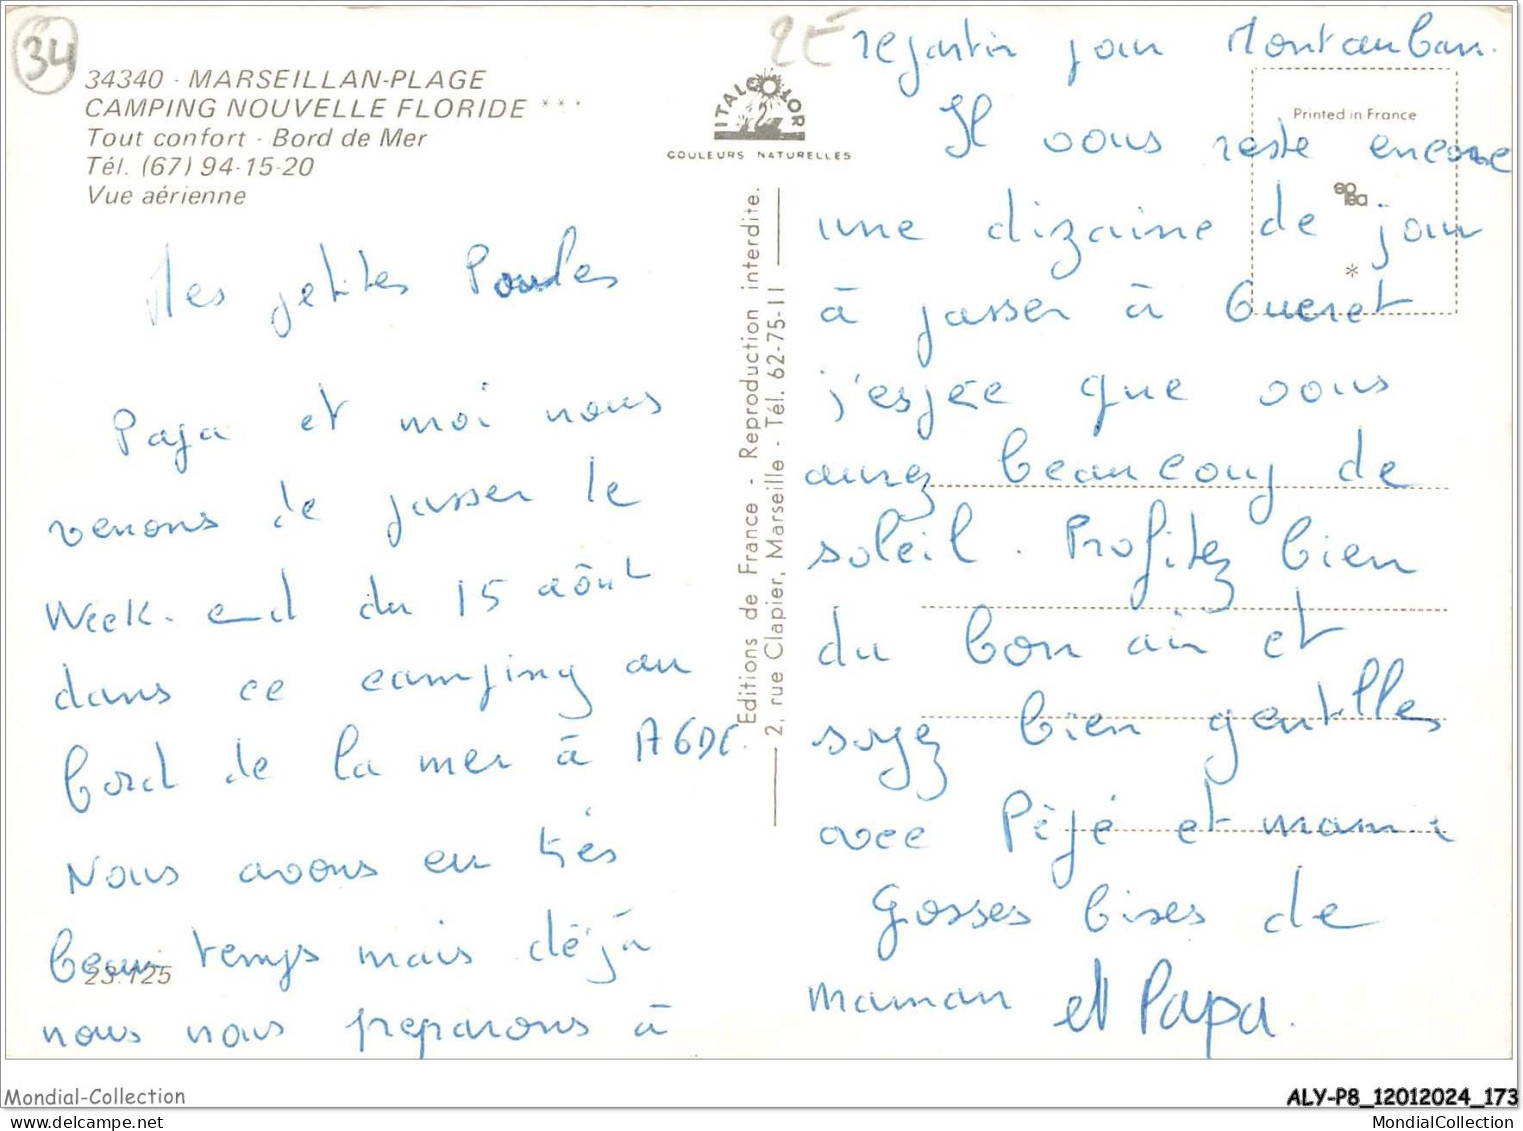 34
34340 - MARSEILLAN-PLAGE
CAMPING NOUVELLE FLORIDE ***
Tout confort - Bord de Mer
Tél. (67) 94-15-20
Vue aérienne
Mes petites Poules
Papa et moi nous
venons de passer le
Week-end du 15 aôut
dans ce camping au
bord de la mer à AGDE.
Nous avons eu très
beau temps mais déjà
nous nous preparons à
23.125
ITALCOLOR
COULEURS NATURELLES
Editions de France - Reproduction interdite.
2, rue Clapier, Marseille - Tél. 62-75-11
2E
repartir pour Montauban.
Il vous reste encore
une dizaine de jour
à passer à Gueret
j'espée que vous
aurez beaucoup de
soleil. Profitez bien
du bon air et
soyez bien gentilles
avec Pépé et mami
Gosses bises de
maman et Papa.
Printed in France
Mondial-Collection
ALY-P8_12012024_173
MondialCollection